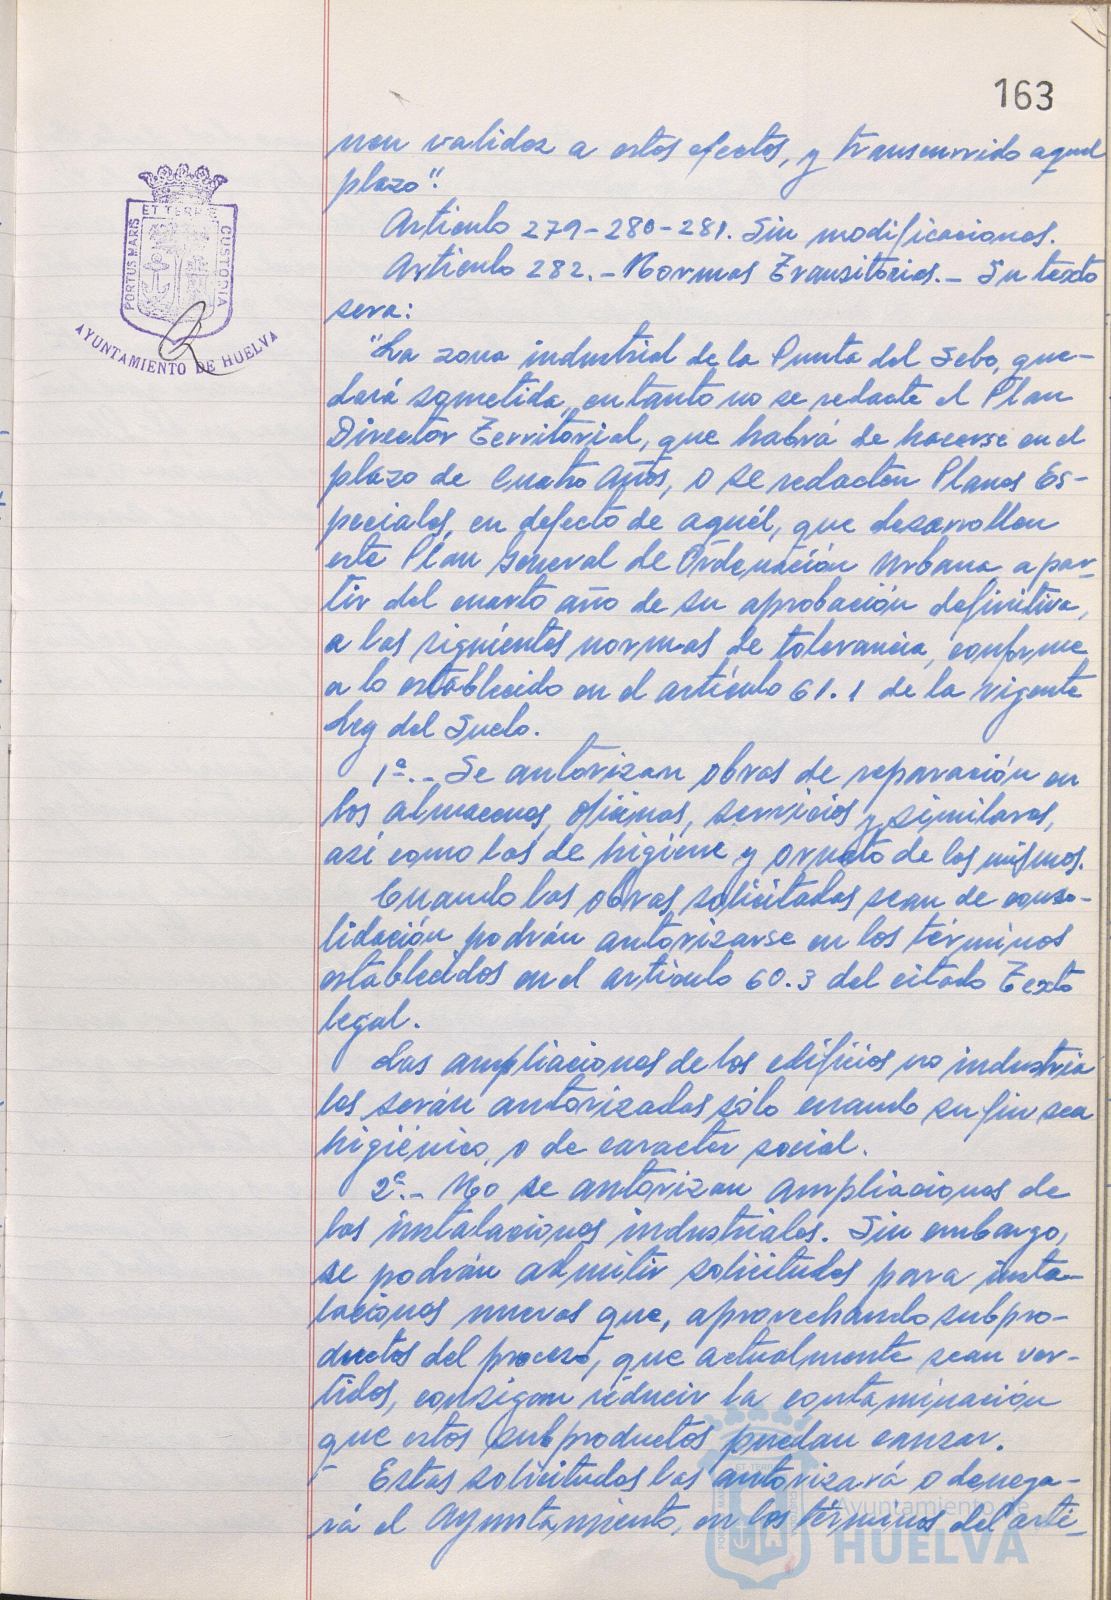 163
nen validez a estos efectos, y transcurrido aquel
plazo".
Artículo 279-280-281. Sin modificaciones.
Artículo 282.- Normas Transitorias.- Su texto
sera:
"La zona industrial de la Punta del Sebo, que-
dará sometida, en tanto no se redacte el Plan
Director Territorial, que habrá de hacerse en el
plazo de cuatro años, o se redacten Planes Es-
peciales, en defecto de aquél, que desarrollen
este Plan General de Ordenación Urbana a par-
tir del cuarto año de su aprobación definitiva,
a las siguientes normas de tolerancia, conforme
a lo establecido en el artículo 61.1 de la vigente
Ley del Suelo.
1ª.- Se autorizan obras de reparación en
los almacenes, oficinas, servicios y similares,
así como las de higiene y ornato de los mismos.
Cuando las obras solicitadas sean de conso-
lidación podrán autorizarse en los términos
establecidos en el artículo 60.3 del citado Texto
legal.
Las ampliaciones de los edificios no industria
les serán autorizadas sólo cuando su fin sea
higiénico, o de caracter social.
2ª.- No se autorizan ampliaciones de
las instalaciones industriales. Sin embargo,
se podrán admitir solicitudes para insta-
laciones nuevas que, aprovechando subpro-
ductos del proceso, que actualmente sean ver-
tidos, consigan reducir la contaminación
que estos subproductos puedan causar.
Estas solicitudes las autorizará o denega-
rá el Ayuntamiento, en los términos del artí-
PORTUS MARIS
ET TERRE
CUSTODIA
AYUNTAMIENTO DE HUELVA
Ayuntamiento de
HUELVA